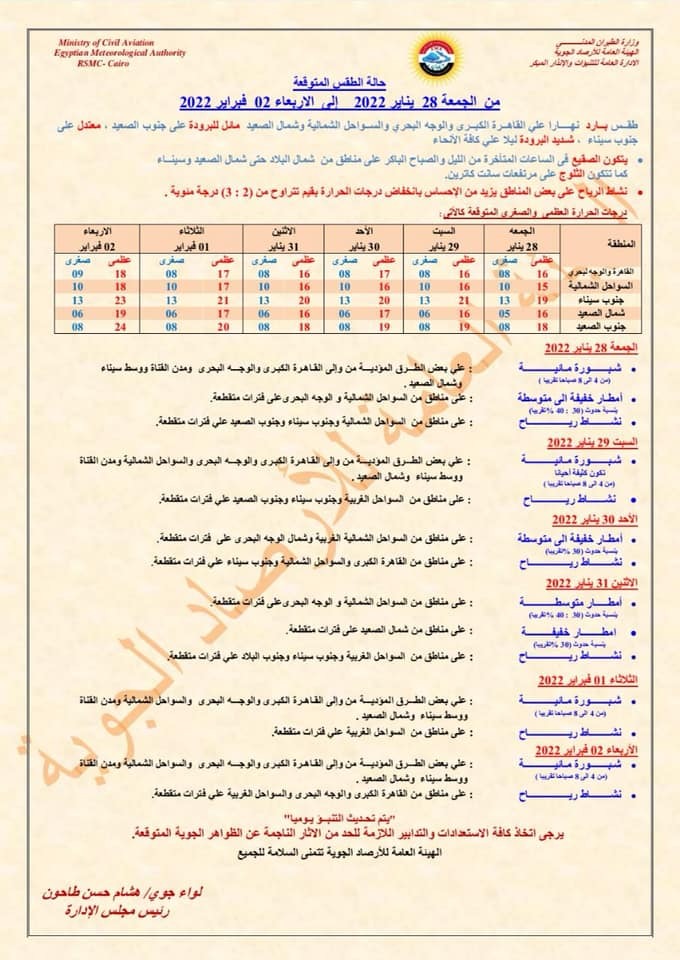 Ministry of Civil Aviation
Egyptian Meteorological Authority
RSMC- Cairo
وزارة الطيران المدنـــي
الهيئة العامة للأرصاد الجوية
الإدارة العامة للتنبؤات والإنذار المبكر
حالة الطقس المتوقعة
من الجمعة 28 يناير 2022 إلى الاربعاء 02 فبراير 2022
طقـس بـارد نهـارا علي القاهـرة الكبـرى والوجه البحري والسـواحل الشمالية وشمال الصعيد مائل للبرودة على جنوب الصعيد ، معتدل على
جنوب سيناء ، شـديد البرودة ليلا علي كافة الأنحاء
يتكون الصقيع فى الساعات المتأخرة من الليل والصباح الباكر على مناطق من شمال البلاد حتى شمال الصعيد وسيناء
كما تتكون الثلوج على مرتفعات سانت كاترين.
نشاط الرياح على بعض المناطق يزيد من الإحساس بانخفاض درجات الحرارة بقيم تتراوح من (2 : 3) درجة مئوية .
درجات الحرارة العظمى والصغرى المتوقعة كالآتي:
المنطقة الجمعه السبت الأحد الاثنين الثلاثاء الاربعاء
28 يناير 29 يناير 30 يناير 31 يناير 01 فبراير 02 فبراير
عظمى صغرى عظمى صغرى عظمى صغرى عظمى صغرى عظمى صغرى عظمى صغرى
القاهرة والوجه لبحري 16 08 16 08 17 08 16 08 17 08 18 09
السواحل الشمالية 15 10 16 10 16 10 16 10 17 10 18 10
جنوب سيناء 19 13 21 13 20 13 20 13 21 13 23 13
شمال الصعيد 16 05 16 06 17 06 16 06 17 06 19 06
جنوب الصعيد 18 08 19 08 19 08 18 08 20 08 24 08
الجمعة 28 يناير 2022
شـــبـــورة مـائـيـــــة : علي بعض الطـرق المؤديـة من وإلى القـاهـرة الكبرى والوجـه البحرى ومدن القناة ووسط سيناء
(من 4 إلى 8 صباحا تقريبا ) وشمال الصعيد .
أمطار خفيفة الى متوسطة : على مناطق من السواحل الشمالية و الوجه البحرى على فترات متقطعة.
(نسبة حدوث (30 : 40 %تقريبا)
نشـــاط ريـــــاح : على مناطق من السواحل الشمالية وجنوب سيناء وجنوب الصعيد علي فترات متقطعة.
السبت 29 يناير 2022
شـــبـــورة مـائـيـــــة : علي بعض الطـرق المؤديـة من وإلى القـاهـرة الكبرى والوجـه البحرى والسواحل الشمالية ومدن القناة
تكون كثيفة أحيانا ووسط سيناء وشمال الصعيد .
(من 4 الى 8 صباحا تقريبا)
نشـــاط ريـــــاح : على مناطق من السواحل الغربية وجنوب سيناء وجنوب الصعيد علي فترات متقطعة.
الأحد 30 يناير 2022
أمطار خفيفة الى متوسطة : على مناطق من السواحل الشمالية الغربية وشمال الوجه البحرى على فترات متقطعة.
(نسبة حدوث (30 %تقريبا)
نشـــاط ريـــــاح : على مناطق من القاهرة الكبرى والسواحل الشمالية وجنوب سيناء علي فترات متقطعة.
الاثنين 31 يناير 2022
أمطـــار متوسطــــة : على مناطق من السواحل الشمالية و الوجه البحرى على فترات متقطعة.
(نسبة حدوث (30 : 40 %تقريبا)
امطـــار خفيفــــة : على مناطق من شمال الصعيد على فترات متقطعة.
(نسبة حدوث (30 %تقريبا)
نشـــاط ريـــــاح : على مناطق من السواحل الغربية وجنوب سيناء وجنوب البلاد علي فترات متقطعة.
الثلاثاء 01 فبراير 2022
شـــبـــورة مـائـيـــــة : علي بعض الطـرق المؤديـة من وإلى القـاهـرة الكبرى والوجـه البحرى والسواحل الشمالية ومدن القناة
(من 4 إلى 8 صباحا تقريبا ) ووسط سيناء وشمال الصعيد .
نشـــاط ريـــــاح : على مناطق من السواحل الغربية علي فترات متقطعة.
الأربعاء 02 فبراير 2022
شـــبـــورة مـائـيـــــة : علي بعض الطـرق المؤديـة من وإلى القـاهـرة الكبرى والوجـه البحرى والسواحل الشمالية ومدن القناة
(من 4 إلى 8 صباحا تقريبا) ووسط سيناء وشمال الصعيد .
نشـــاط ريـــــاح : على مناطق من القاهـرة الكبرى والوجـه البحرى والسواحل الغربية علي فترات متقطعة.
"يتم تحديث التنبـؤ يوميـا"
يرجى اتخاذ كافة الاستعدادات والتدابير اللازمة للحد من الاثار الناجمة عن الظواهر الجوية المتوقعة.
الهيئة العامة للأرصاد الجوية تتمنى السلامة للجميع
لواء جوي/ هشام حسن طاحون
رئيس مجلس الإدارة
الهيئة العامة للأرصاد الجوية